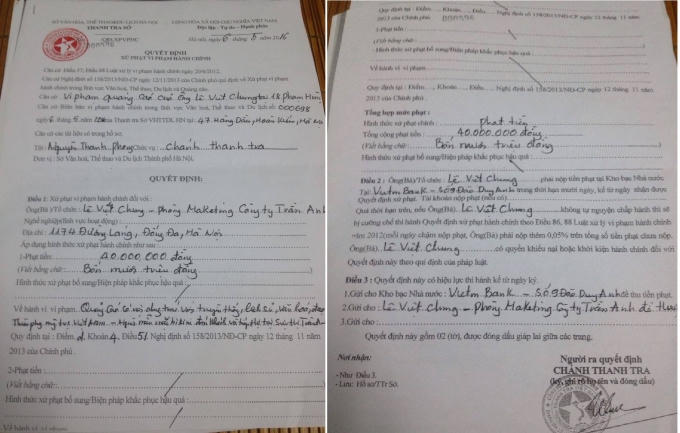 SỞ VĂN HÓA, THỂ THAO&DU LỊCH HÀ NỘI
THANH TRA SỞ
CỘNG HÒA XÃ HỘI CHỦ NGHĨA VIỆT NAM
Độc lập - Tự do - Hạnh phúc
QĐ-XPVPHC
Hà nội, ngày 6 tháng 5 năm 2016
QUYẾT ĐỊNH
XỬ PHẠT VI PHẠM HÀNH CHÍNH
Căn cứ Điều 57, Điều 68 Luật xử lý vi phạm hành chính ngày 20/6/2012.
Căn cứ Nghị định số 158/2013/NĐ-CP ngày 12/11/2013 của Chính phủ qui định về Xử phạt vi phạm
hành chính trong lĩnh vực Văn hoá, Thể thao, Du lịch và Quảng cáo.
Căn cứ Vi phạm quảng cáo của ông Lê Viết Chung tại 18 Phạm Hùng
Căn cứ Biên bản vi phạm hành chính trong lĩnh vực Văn hoá, Thể thao và Du lịch số: 000098
ngày 6 tháng 5 năm của Thanh tra Sở VHTTDL HN tại: 47 Hàng Dầu, Hoàn Kiếm, Hà Nội
Căn cứ các tài liệu có trong hồ sơ,
Tôi: Nguyễn Thanh Phong Chức vụ: Chánh thanh tra
Đơn vị: Sở Văn Hoá, Thể thao và Du lịch Thành phố Hà Nội.
QUYẾT ĐỊNH:
Điều 1: Xử phạt vi phạm hành chính đối với:
Ông(Bà)/Tổ chức: Lê Viết Chung - Phòng Maketing Công ty Trần Anh
Nghề nghiệp(lĩnh vực hoạt động):
Địa chỉ: 1174 Đường Láng, Đống Đa, Hà Nội
Áp dụng hành chính như sau:
1-Phạt tiền: 40.000.000 đồng
(Viết bằng chữ): Bốn mươi triệu đồng
Hình thức xử phạt bổ sung/Biện pháp khắc phục hậu quả:
Về hành vi vi phạm: Quảng cáo có nội dung trái với truyền thống, lịch sử, văn hóa, đạo
Quy định tại: Điểm d, Khoản 4, Điều 51 Nghị định số 158/2013/NĐ-CP ngày 12 tháng 11 năm
2013 của Chính phủ.
2-Phạt tiền:
(Viết bằng chữ):
Hình thức xử phạt bổ sung/Biện pháp khắc phục hậu quả:
Về hành vi vi phạm:
Quy định tại: Điểm, Khoản, Điều Nghị định số 158/2013/NĐ-CP ngày 12 tháng 11 năm
2013 của Chính phủ.
3-Phạt tiền:
(Viết bằng chữ):
Hình thức xử phạt bổ sung/Biện pháp khắc phục hậu quả:
Về hành vi vi phạm:
Quy định tại: Điểm, Khoản, Điều Nghị định số 158/2013/NĐ-CP ngày 12 tháng 11 năm
2013 của Chính phủ.
Tổng hợp mức phạt:
Hình thức xử phạt chính: phạt tiền
Tổng cộng phạt tiền: 40.000.000 đồng
(Viết bằng chữ): Bốn mươi triệu đồng
Hình thức xử phạt bổ sung/Biện pháp khắc phục hậu quả:
Điều 2: Ông(Bà)/Tổ chức: Lê Viết Chung phải nộp tiền phạt tại Kho bạc Nhà nước
Tại: Vietin Bank - Số 9 Đào Duy Anh trong thời hạn mười ngày, kể từ ngày nhận được
Quyết định xử phạt. Tài khoản nộp phạt(nếu có)
Quá thời hạn trên, nếu Ông(Bà) Lê Viết Chung không tự nguyện chấp hành thì sẽ
bị cưỡng chế thi hành Quyết định xử phạt hành chính theo Điều 86, 88 Luật xử lý vi phạm hành chính
năm 2012(mỗi ngày chậm nộp phạt, Ông(Bà) phải nộp thêm 0,05% trên tổng số tiền phạt chưa nộp.
Ông(Bà) Lê Viết Chung có quyền khiếu nại hoặc khởi kiện hành chính đối với
Quyết định này theo qui định của pháp luật.
Điều 3: Quyết định này có hiệu lực thi hành kể từ ngày ký.
1.Gửi cho Kho bạc Nhà nước: Vietin Bank - Số 9 Đào Duy Anh để thu tiền phạt.
2.Gửi cho: Lê Viết Chung - Phòng Maketing Công ty Trần Anh để
3.Gửi cho:
Quyết định này gồm 02 (tờ), được đóng dấu giáp lai giữa các trang.
Nơi nhận:
- Như Điều 3.
- Lưu: Hồ sơ/TTr Sở.
Người ra quyết định
CHÁNH THANH TRA
(ký, ghi rõ họ tên và đóng dấu)